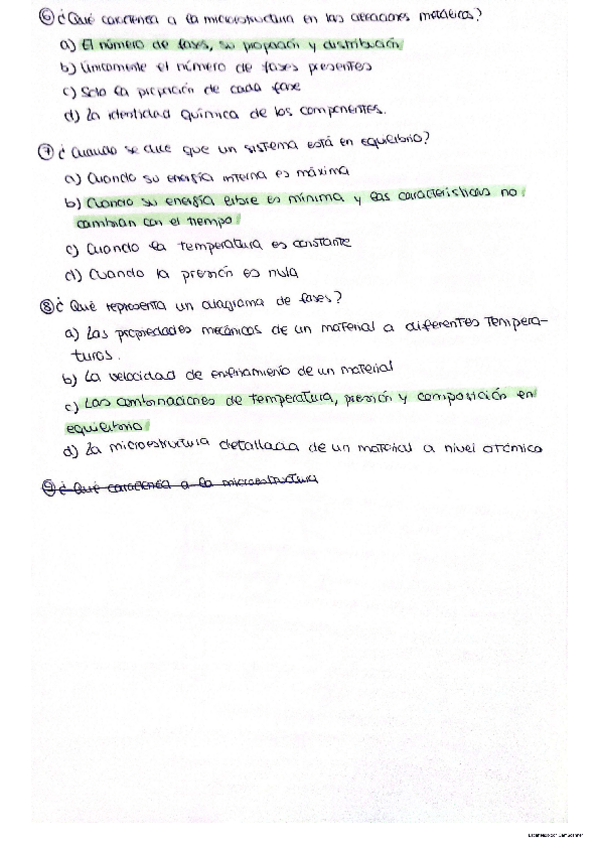 ⑥ ¿Qué caracteriza a la microestructura en las aleaciones metálicas?
a) El número de fases, su proporción y distribución
b) Únicamente el número de fases presentes
c) Solo la proporción de cada fase
d) La identidad química de los componentes.
⑦ ¿Cuando se dice que un sistema está en equilibrio?
a) Cuando su energía interna es máxima
b) Cuando su energía libre es mínima y las características no
cambian con el tiempo
c) Cuando la temperatura es constante
d) Cuando la presión es nula
⑧ ¿Qué representa un diagrama de fases?
a) Las propiedades mecánicas de un material a diferentes tempera-
turas.
b) La velocidad de enfriamiento de un material
c) Las combinaciones de temperatura, presión y composición en
equilibrio
d) La microestructura detallada de un material a nivel atómico
⑨ ¿Qué caracteriza a la microestructura